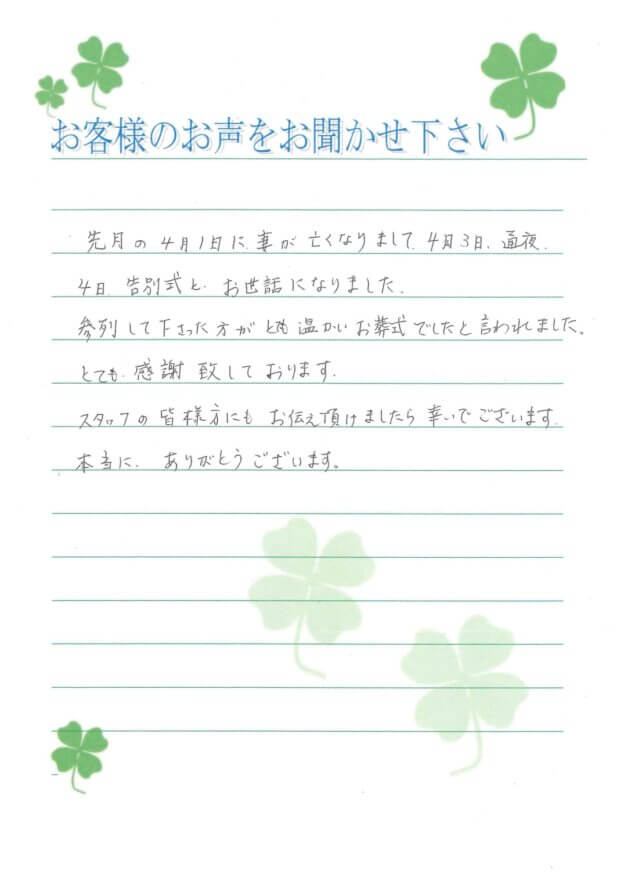 お客様のお声をお聞かせ下さい
先月の4月1日に妻が亡くなりまして、4月3日、通夜、
4日、告別式と、お世話になりました。
参列して下さった方がとても温かいお葬式でしたと言われました。
とても、感謝致しております。
スタッフの皆様方にもお伝え頂けましたら幸いでございます。
本当に、ありがとうございます。